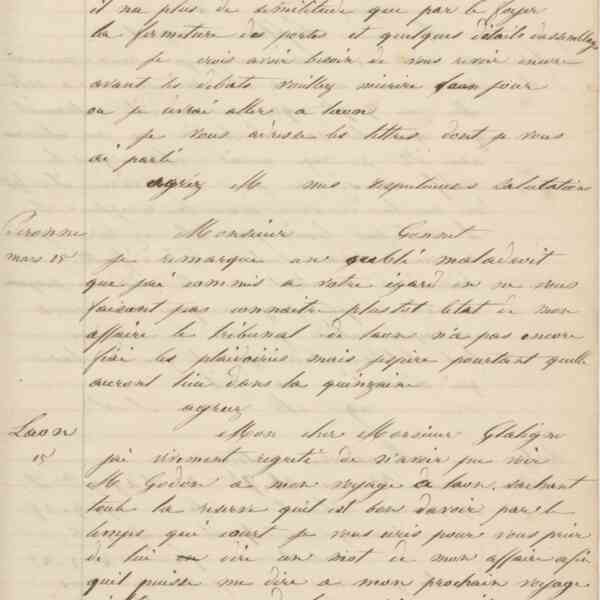 il n'a plus de similitude que par le foyer
la fermeture des portes et quelques détails d'assemblage
je crois avoir besoin de vous revoir encore
avant les débats veuillez m'écrire un jour
ou je devrai aller a Laon
je vous adresse les lettres dont je vous
ai parlé
agréez M mes respectueuses salutations
Peronne Monsieur Gonnet
mars 15 je remarque un oublié maladroit
que j'ai commis a votre égard en ne vous
faisant pas connaitre plustot l'etat de mon
affaire le tribunal de Laon n'a pas encore
fixé les plaidoiries mais j'espère pourtant quelle
auront lieu dans la quinzain
agreez
Laon Mon cher Monsieur Glatigny
15 j'ai vivement regretté de n'avoir pu voir
M Godon a mon voyage a Laon. sachant
toute la reserve quil est bon d'avoir par le
temps qui court je vous ecris pour vous prier
de lui dire un mot de mon affaire afin
qu'il puisse me dire a mon prochain voyage